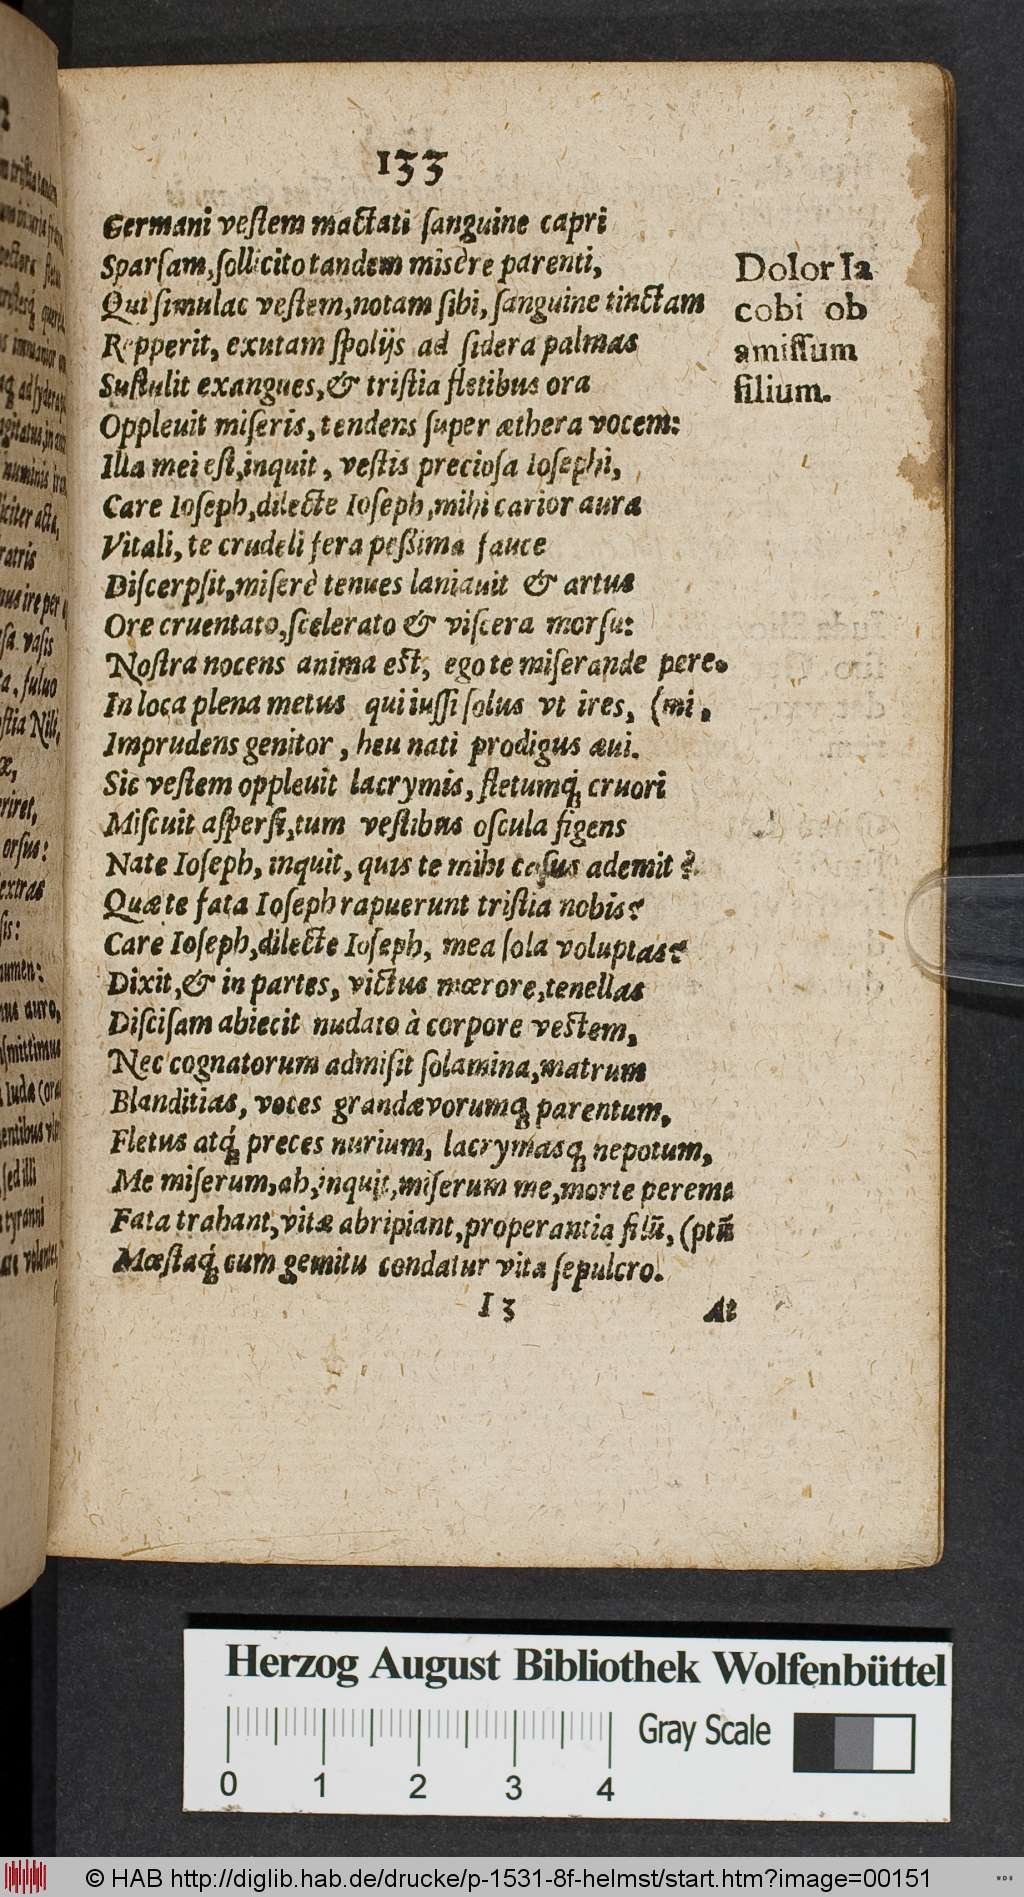 133
Germani veſtem mactati ſanguine capri
Sparſam, ſollicito tandem misère parenti,
Qui ſimulac veſtem, notam ſibi, ſanguine tinctam
Repperit, exutam ſpolijs ad ſidera palmas
Suſtulit exangues, & triſtia fletibus ora
Oppleuit miſeris, tendens ſuper æthera vocem:
Illa mei eſt, inquit, veſtis precioſa Ioſephi,
Care Ioſeph, dilecte Ioſeph, mihi carior aura
Vitali, te crudeli fera peßima fauce
Diſcerpſit, miſerè tenues laniauit & artus
Ore cruentato, ſcelerato & viſcera morſu:
Noſtra nocens anima eſt, ego te miſerande pere-
In loca plena metus qui iuſſi ſolus vt ires, (mi,
Imprudens genitor, heu nati prodigus æui.
Sic veſtem oppleuit lacrymis, fletumq́; cruori
Miſcuit aſperſi, tum veſtibus oſcula figens
Nate Ioſeph, inquit, quis te mihi caſus ademit?
Quæ te fata Ioſeph rapuerunt triſtia nobis?
Care Ioſeph, dilecte Ioſeph, mea ſola voluptas?
Dixit, & in partes, victus mœrore, tenellas
Diſciſam abiecit nudato à corpore veſtem,
Nec cognatorum admiſit ſolamina, matrum
Blanditias, voces grandævorumq; parentum,
Fletus atq́; preces nurium, lacrymasq; nepotum,
Me miſerum, ah, inquit, miſerum me, morte perem
Fata trahant, vitæ abripiant, properantia filū, (ptū
Mœſtaq́; cum gemitu condatur vita ſepulcro.
I 3 At
Dolor Ia
cobi ob
amiſſum
filium.
Herzog August Bibliothek Wolfenbüttel
0 1 2 3 4
Gray Scale
© HAB http://diglib.hab.de/drucke/p-1531-8f-helmst/start.htm?image=00151